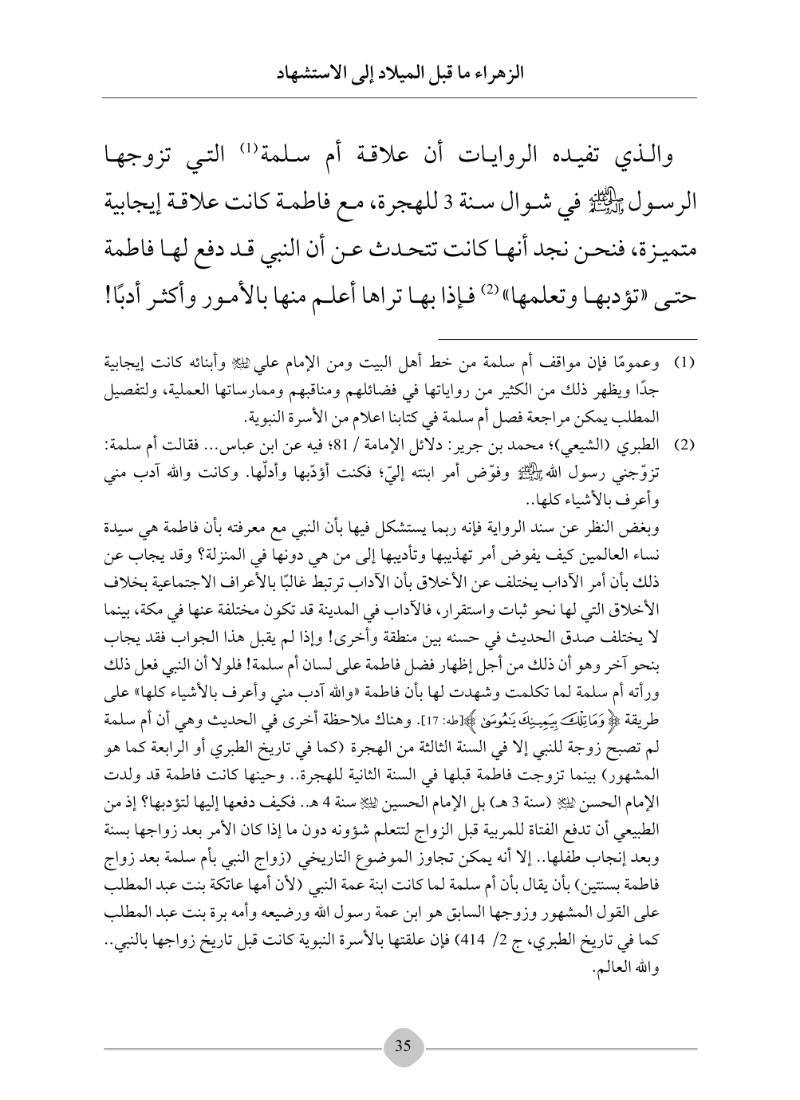 الزهراء ما قبل الميلاد إلى الاستشهاد
والـذي تفيـده الروايـات أن علاقـة أم سـلمة(1) التـي تزوجهـا
الرسـول ﷺ في شـوال سـنة 3 للهجرة، مـع فاطمـة كانت علاقـة إيجابية
متميـزة، فنحـن نجد أنهـا كانت تتحـدث عـن أن النبي قـد دفع لهـا فاطمة
حتـى «تؤدبهـا وتعلمها»(2) فـإذا بهـا تراها أعلـم منها بالأمـور وأكثـر أدبًا!
(1) وعمومًا فإن مواقف أم سلمة من خط أهل البيت ومن الإمام علي عليه السلام وأبنائه كانت إيجابية
جدًا ويظهر ذلك من الكثير من رواياتها في فضائلهم ومناقبهم وممارساتها العملية، ولتفصيل
المطلب يمكن مراجعة فصل أم سلمة في كتابنا اعلام من الأسرة النبوية.
(2) الطبري (الشيعي)؛ محمد بن جرير: دلائل الإمامة / 81؛ فيه عن ابن عباس... فقالت أم سلمة:
تزوّجني رسول الله ﷺ وفوّض أمر ابنته إليّ؛ فكنت أؤدّبها وأدلّها. وكانت والله آدب مني
وأعرف بالأشياء كلها..
وبغض النظر عن سند الرواية فإنه ربما يستشكل فيها بأن النبي مع معرفته بأن فاطمة هي سيدة
نساء العالمين كيف يفوض أمر تهذيبها وتأديبها إلى من هي دونها في المنزلة؟ وقد يجاب عن
ذلك بأن أمر الآداب يختلف عن الأخلاق بأن الآداب ترتبط غالبًا بالأعراف الاجتماعية بخلاف
الأخلاق التي لها نحو ثبات واستقرار، فالآداب في المدينة قد تكون مختلفة عنها في مكة، بينما
لا يختلف صدق الحديث في حسنه بين منطقة وأخرى! وإذا لم يقبل هذا الجواب فقد يجاب
بنحو آخر وهو أن ذلك من أجل إظهار فضل فاطمة على لسان أم سلمة! فلولا أن النبي فعل ذلك
ورأته أم سلمة لما تكلمت وشهدت لها بأن فاطمة «والله آدب مني وأعرف بالأشياء كلها» على
طريقة ﴿وَمَا تِلْكَ بِيَمِينِكَ يَٰمُوسَىٰ﴾[طه: 17]. وهناك ملاحظة أخرى في الحديث وهي أن أم سلمة
لم تصبح زوجة للنبي إلا في السنة الثالثة من الهجرة (كما في تاريخ الطبري أو الرابعة كما هو
المشهور) بينما تزوجت فاطمة قبلها في السنة الثانية للهجرة.. وحينها كانت فاطمة قد ولدت
الإمام الحسن عليه السلام (سنة 3 هـ) بل الإمام الحسين عليه السلام سنة 4 هـ.. فكيف دفعها إليها لتؤدبها؟ إذ من
الطبيعي أن تدفع الفتاة للمربية قبل الزواج لتتعلم شؤونه دون ما إذا كان الأمر بعد زواجها بسنة
وبعد إنجاب طفلها.. إلا أنه يمكن تجاوز الموضوع التاريخي (زواج النبي بأم سلمة بعد زواج
فاطمة بسنتين) بأن يقال بأن أم سلمة لما كانت ابنة عمة النبي (لأن أمها عاتكة بنت عبد المطلب
على القول المشهور وزوجها السابق هو ابن عمة رسول الله ورضيعه وأمه برة بنت عبد المطلب
كما في تاريخ الطبري، ج 2/ 414) فإن علقتها بالأسرة النبوية كانت قبل تاريخ زواجها بالنبي..
والله العالم.
35